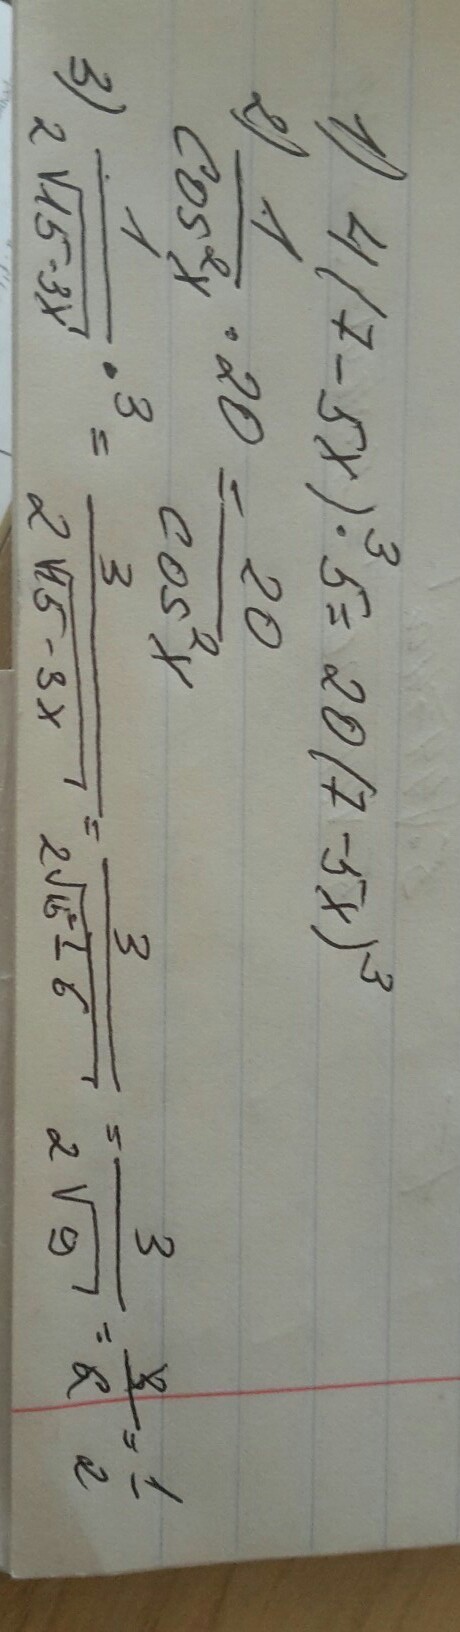 1) 4(7-5x)³·5=20(7-5x)³
2) 1/cos²x · 20 = 20/cos²x
3) 1/(2√(15-3x)) · 3 = 3/(2√(15-3x)) = 3/(2√(15-6)) = 3/(2√9) = 3/6 = 1/2